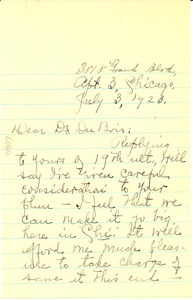 3818 Grand Blvd,
Apt. 3, Chicago,
July 3, 1923.
Dear Dr. Du Bois:
Replying
to yours of 19th ult., will
say I've given careful
consideration to your
plan — I feel that we
can make it go big
here in Chi. It will
afford me much pleas-
ure to take charge of
same at this end —